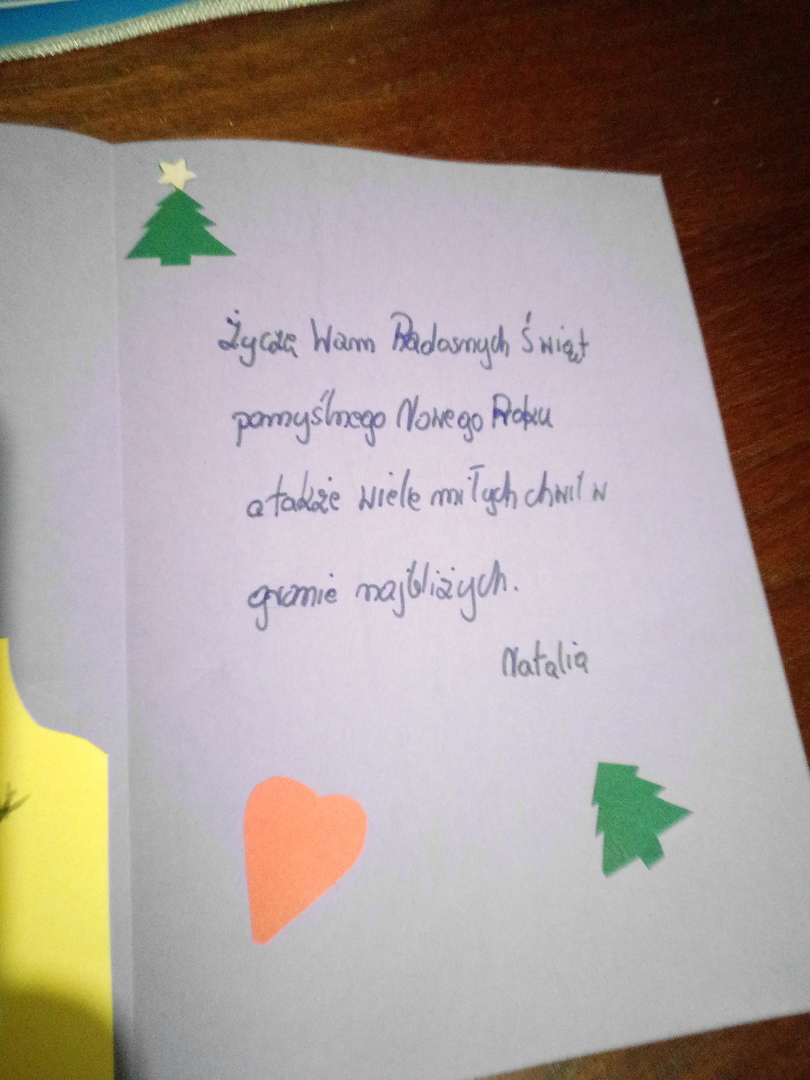 Życzę Wam Radosnych Świąt
pomyślnego Nowego Roku
a także wiele miłych chwil w
gronie najbliżych.
Natalia